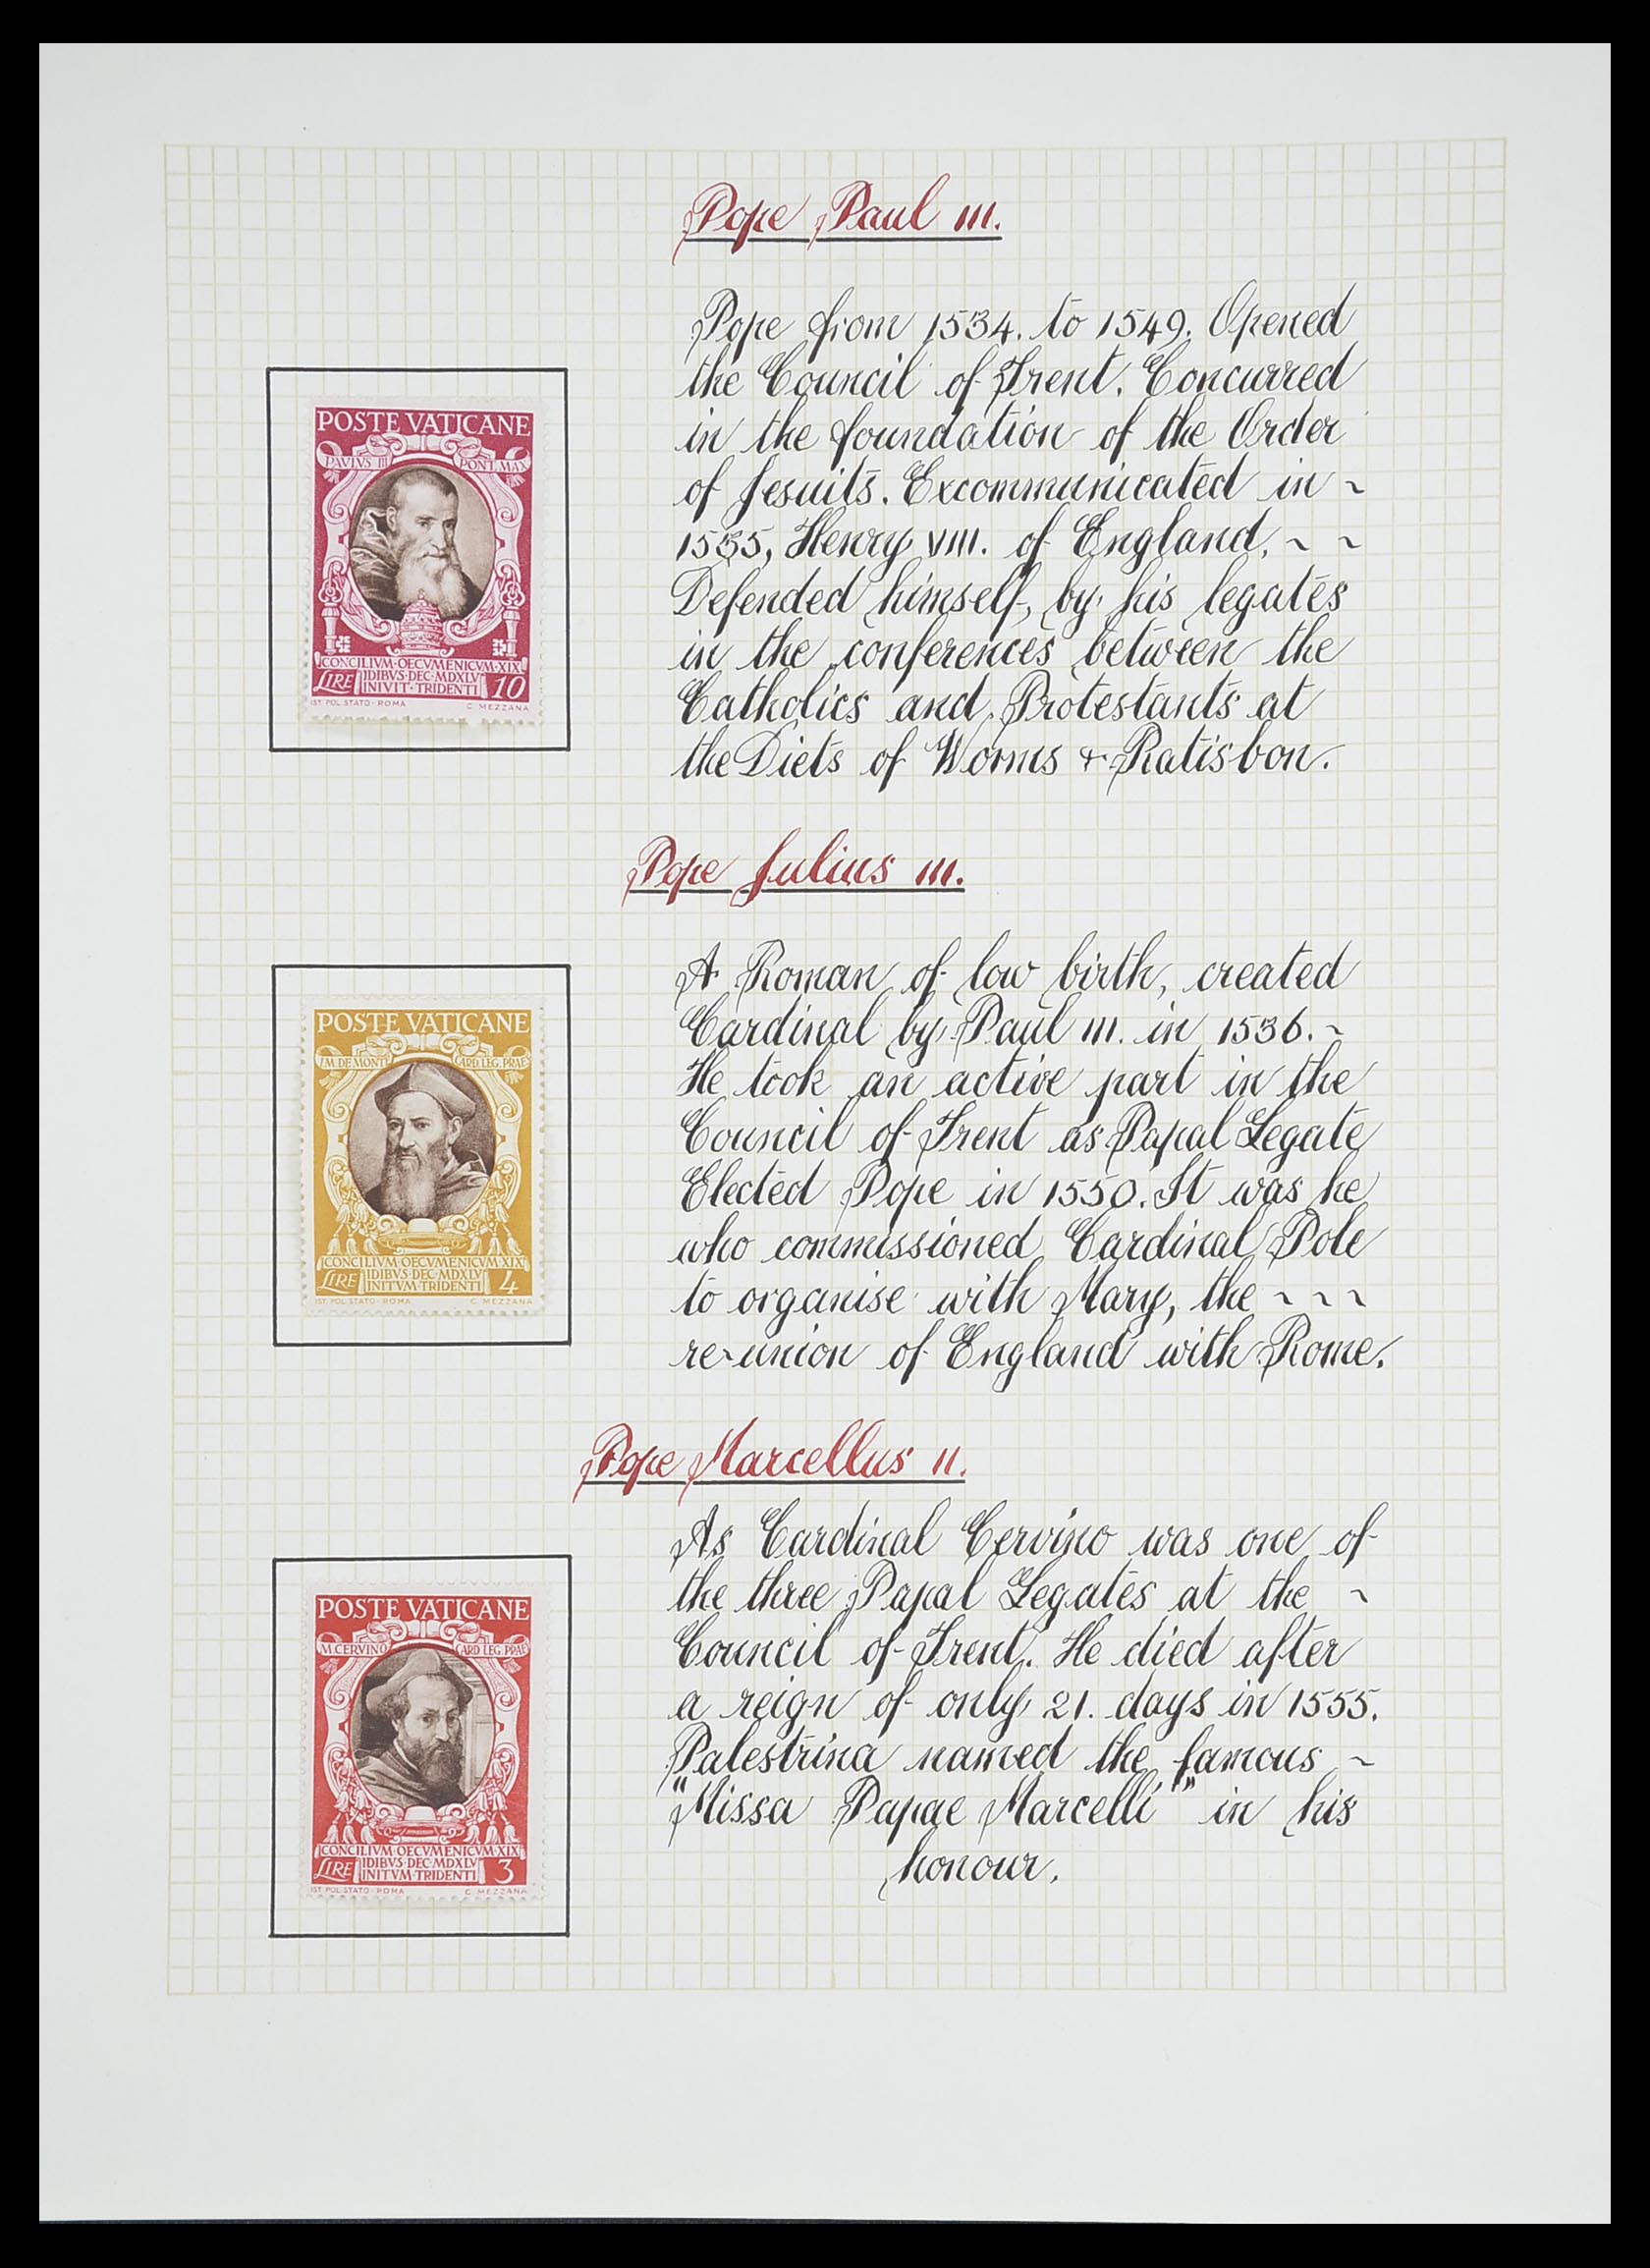 Pope Paul III.
Pope from 1534. to 1549. Opened
the Council of Trent. Concurred
in the foundation of the Order
of Jesuits. Excommunicated in ~
1535, Henry VIII. of England. ~ ~
Defended himself, by his legates
in the conferences between the
Catholics and Protestants at
the Diets of Worms + Ratisbon.
POSTE VATICANE
PAVLVS III PONT. MAX
CONCILIVM·OECVMENICVM·XIX
LIRE IDIBVS·DEC·MDXLV 10
INIVIT·TRIDENTI
IST. POL. STATO - ROMA C. MEZZANA
Pope Julius III.
A Roman of low birth, created
Cardinal by Paul III. in 1536. ~
He took an active part in the
Council of Trent as Papal Legate
Elected Pope in 1550. It was he
who commissioned Cardinal Pole
to organise with Mary, the ~ ~ ~
re-union of England with Rome.
POSTE VATICANE
I.M. DE MONTE CARD. LEG. PRAE
CONCILIVM OECVMENICVM XIX
LIRE IDIBVS·DEC·MDXLV 4
INITVM TRIDENTI
IST. POL. STATO - ROMA C. MEZZANA
Pope Marcellus II.
As Cardinal Cervino was one of
the three Papal Legates at the ~
Council of Trent. He died after
a reign of only 21. days in 1555.
Palestrina named the famous ~
"Missa Papae Marcelli" in his
honour.
POSTE VATICANE
M. CERVINO CARD LEG. PRAE
CONCILIVM OECVMENICVM·XIX
LIRE IDIBVS·DEC·MDXLV 3
INITVM·TRIDENTI
IST. POL. STATO - ROMA C. MEZZANA